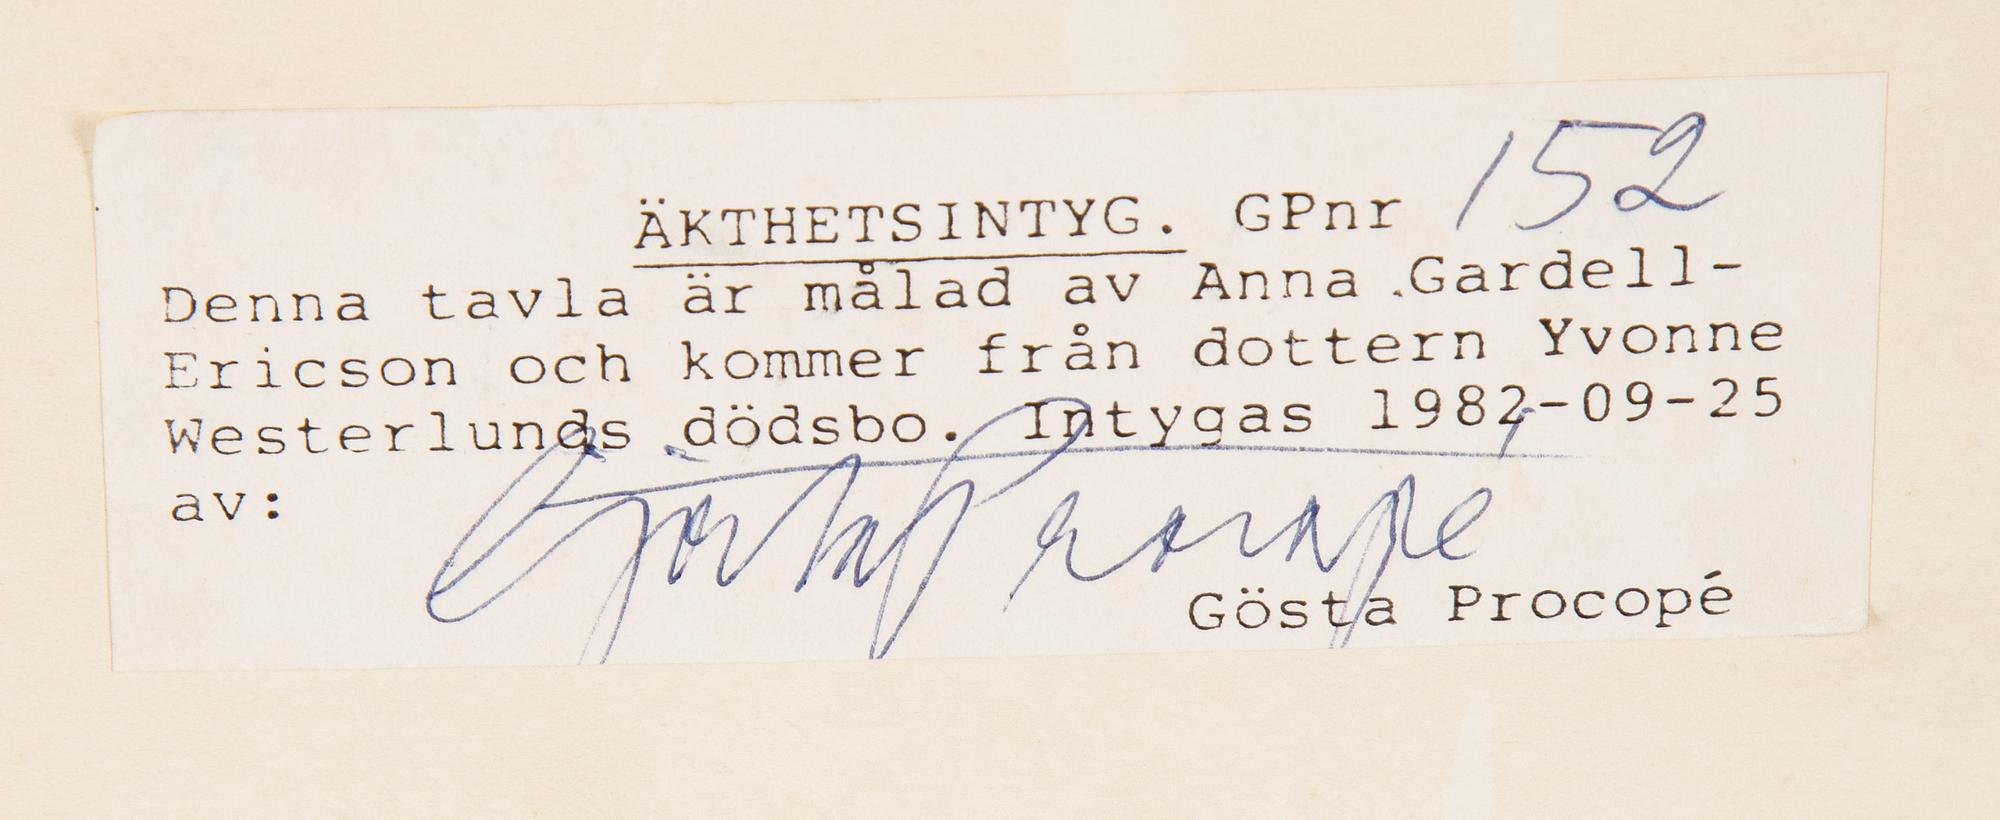 ÄKTHETSINTYG. GPnr 152
Denna tavla är målad av Anna Gardell-
Ericson och kommer från dottern Yvonne
Westerlunds dödsbo. Intygas 1982-09-25
av:
Gösta Procopé
Gösta Procopé